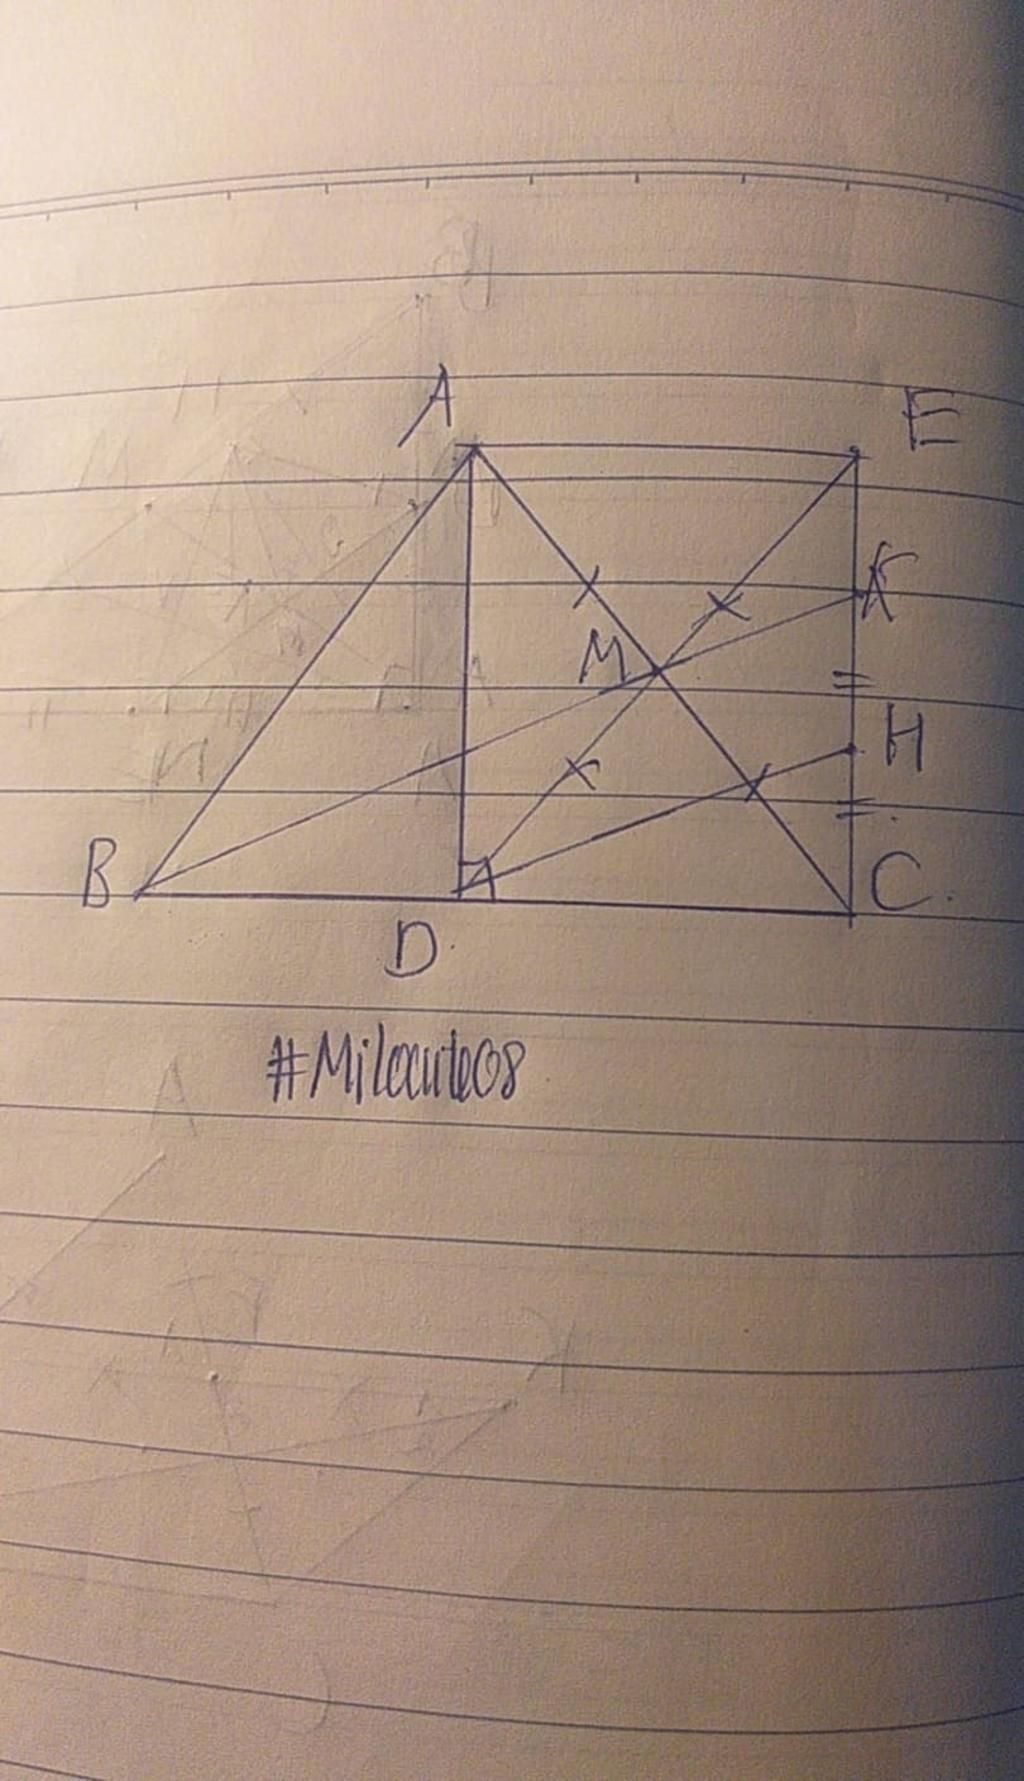 A E
K
M
H
B C
D
#Milocute08